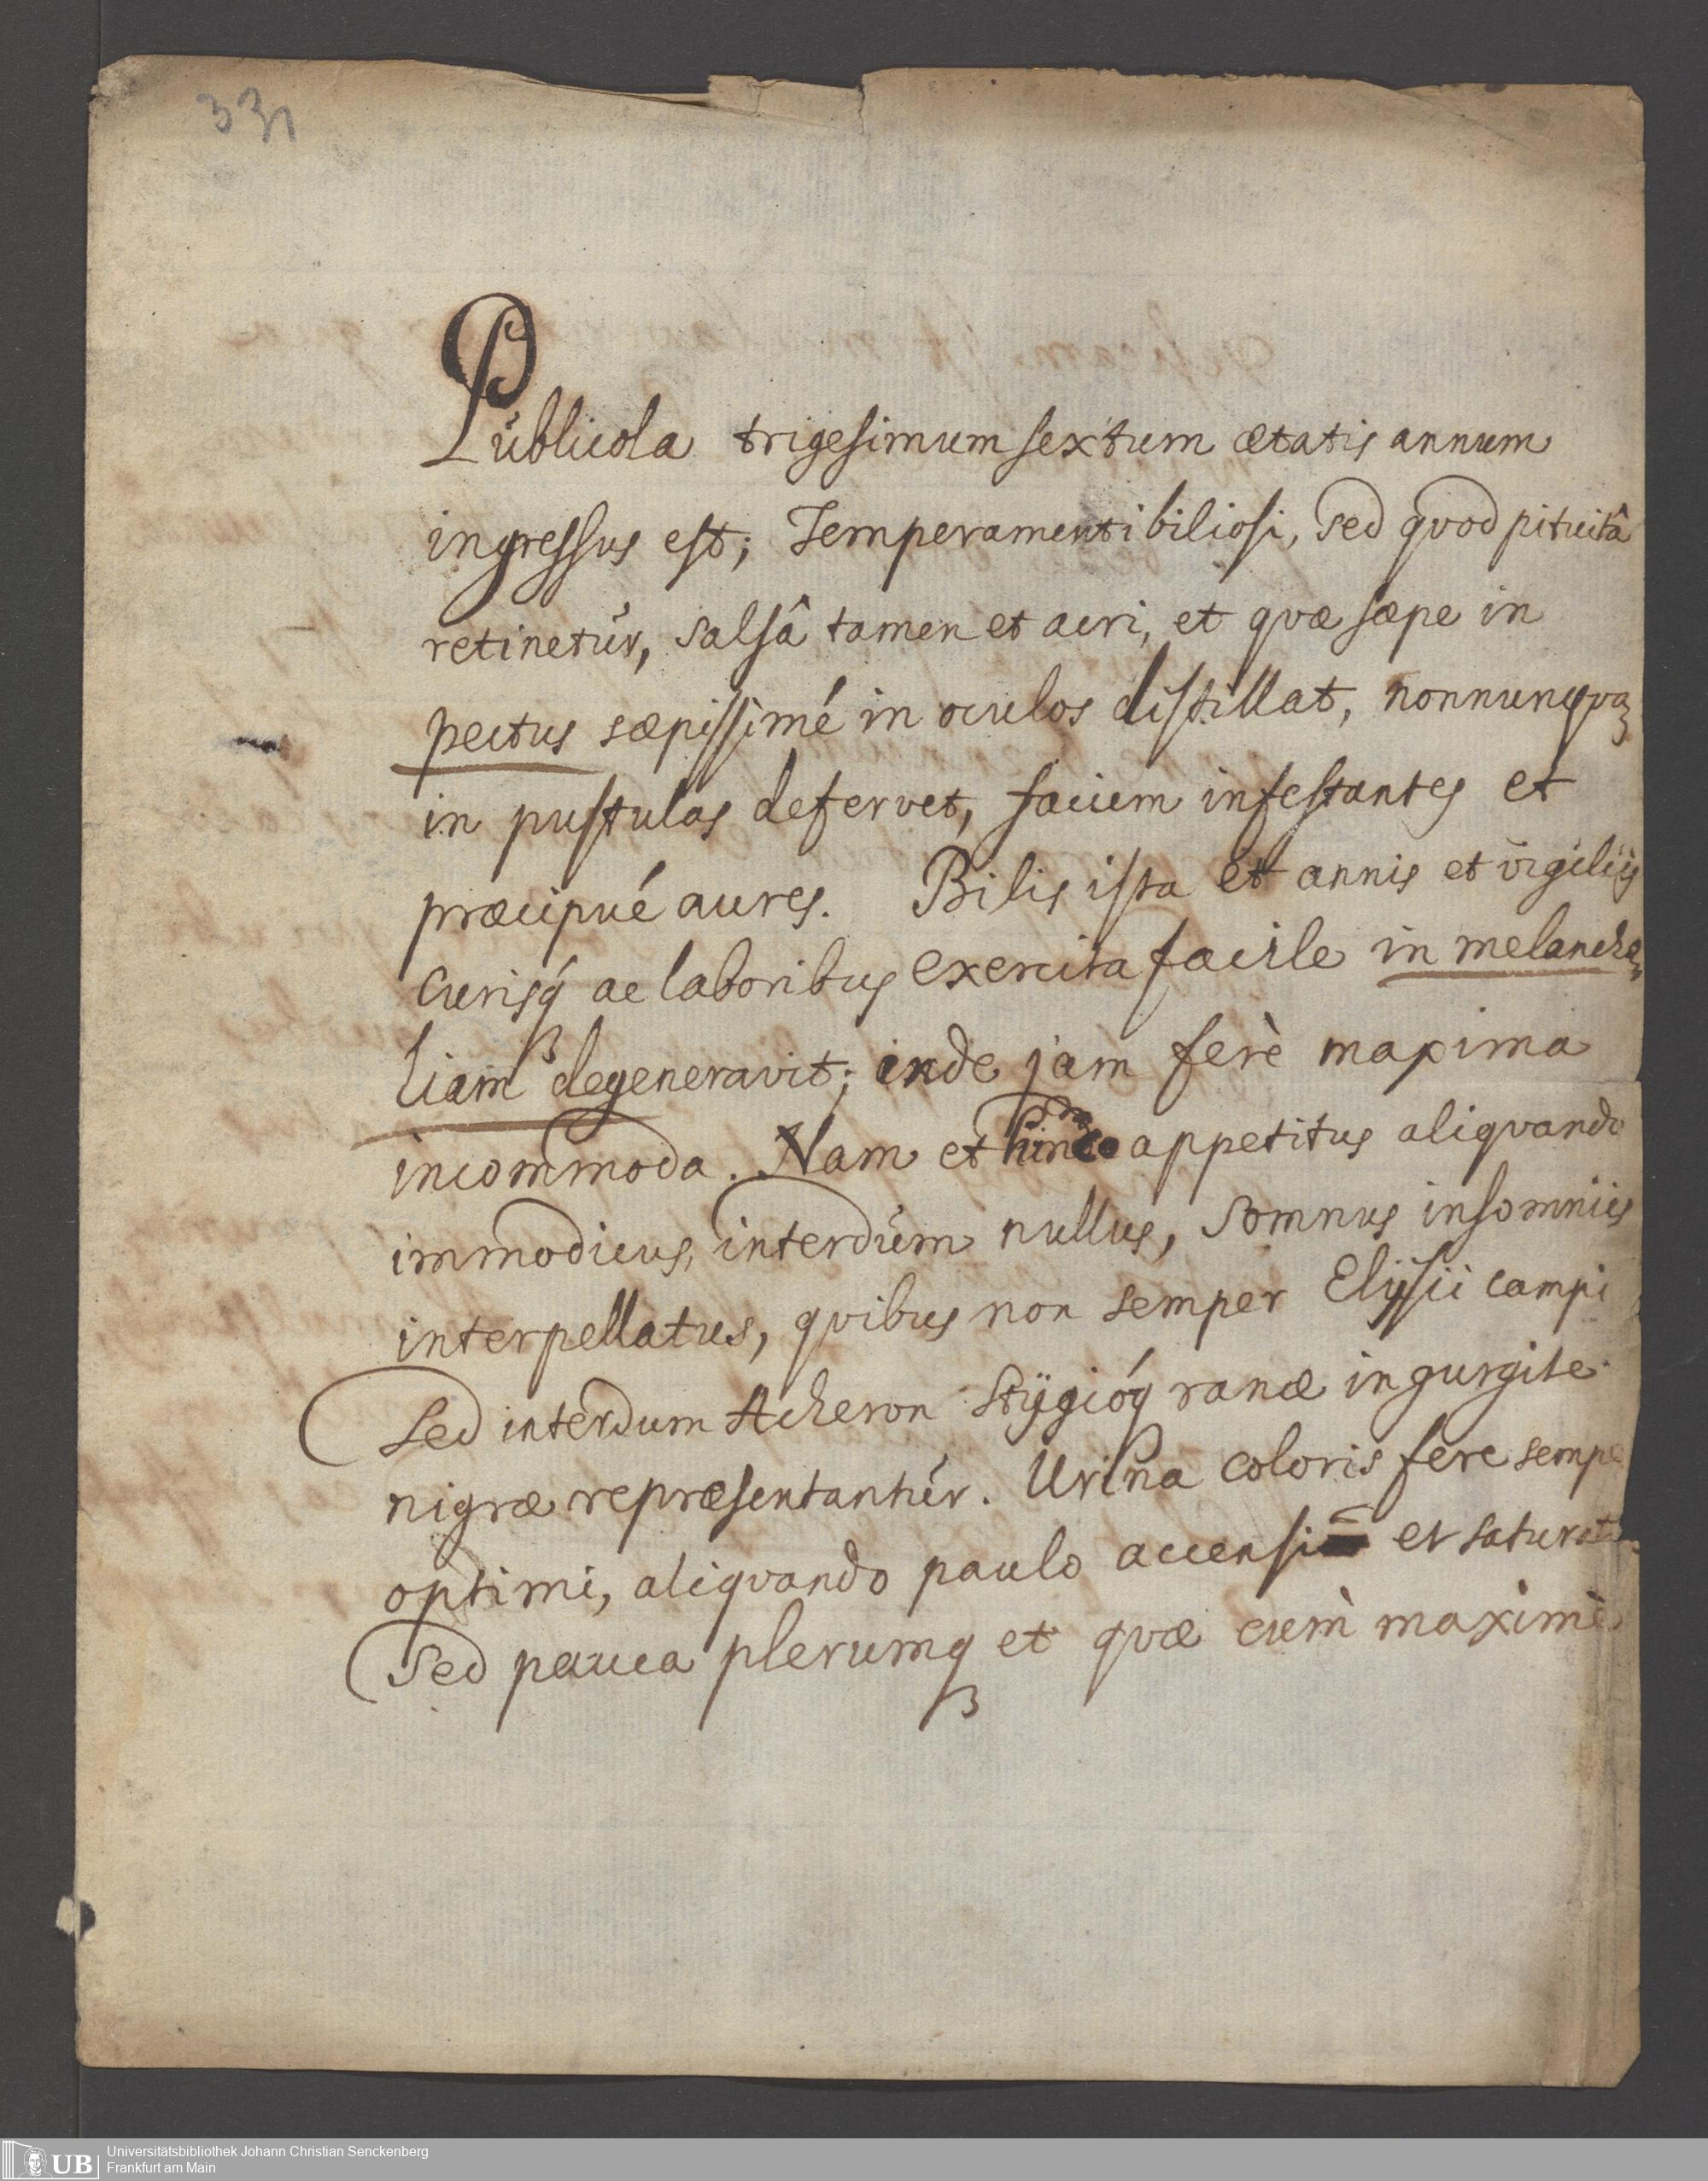 331
Públicola trigesimum sextum ætatis annum
ingressus est; Temperamenti biliosi, sed qvod pituitâ
retinetúr, salsâ tamen et acri, et qvæ sæpe in
pectus sæpissimé in oculos distillat, nonnunqvaꝫ
in pustulas defervet, faciem infestantes et
præcipvé aures. Bilis ista et annis et vigiliis
curisq́ꝫ ac laboribus exercita facile in melancho
liam degeneravit; inde jam ferè maxima
incommoda. Nam et appetitus aliqvando
immodicus, interdúm nullus, somnus insomniis
interpellatus, qvibus non semper Elysii campi
sed interdum Acheron Stÿgióqꝫ ranæ in gurgite
nigræ repræsentantúr. Urina coloris fere sempe
optimi, aliqvando paulo accensi et saturat
sed pauca plerumqꝫ et qvæ cum̀ maximè
UB
Universitätsbibliothek Johann Christian Senckenberg
Frankfurt am Main